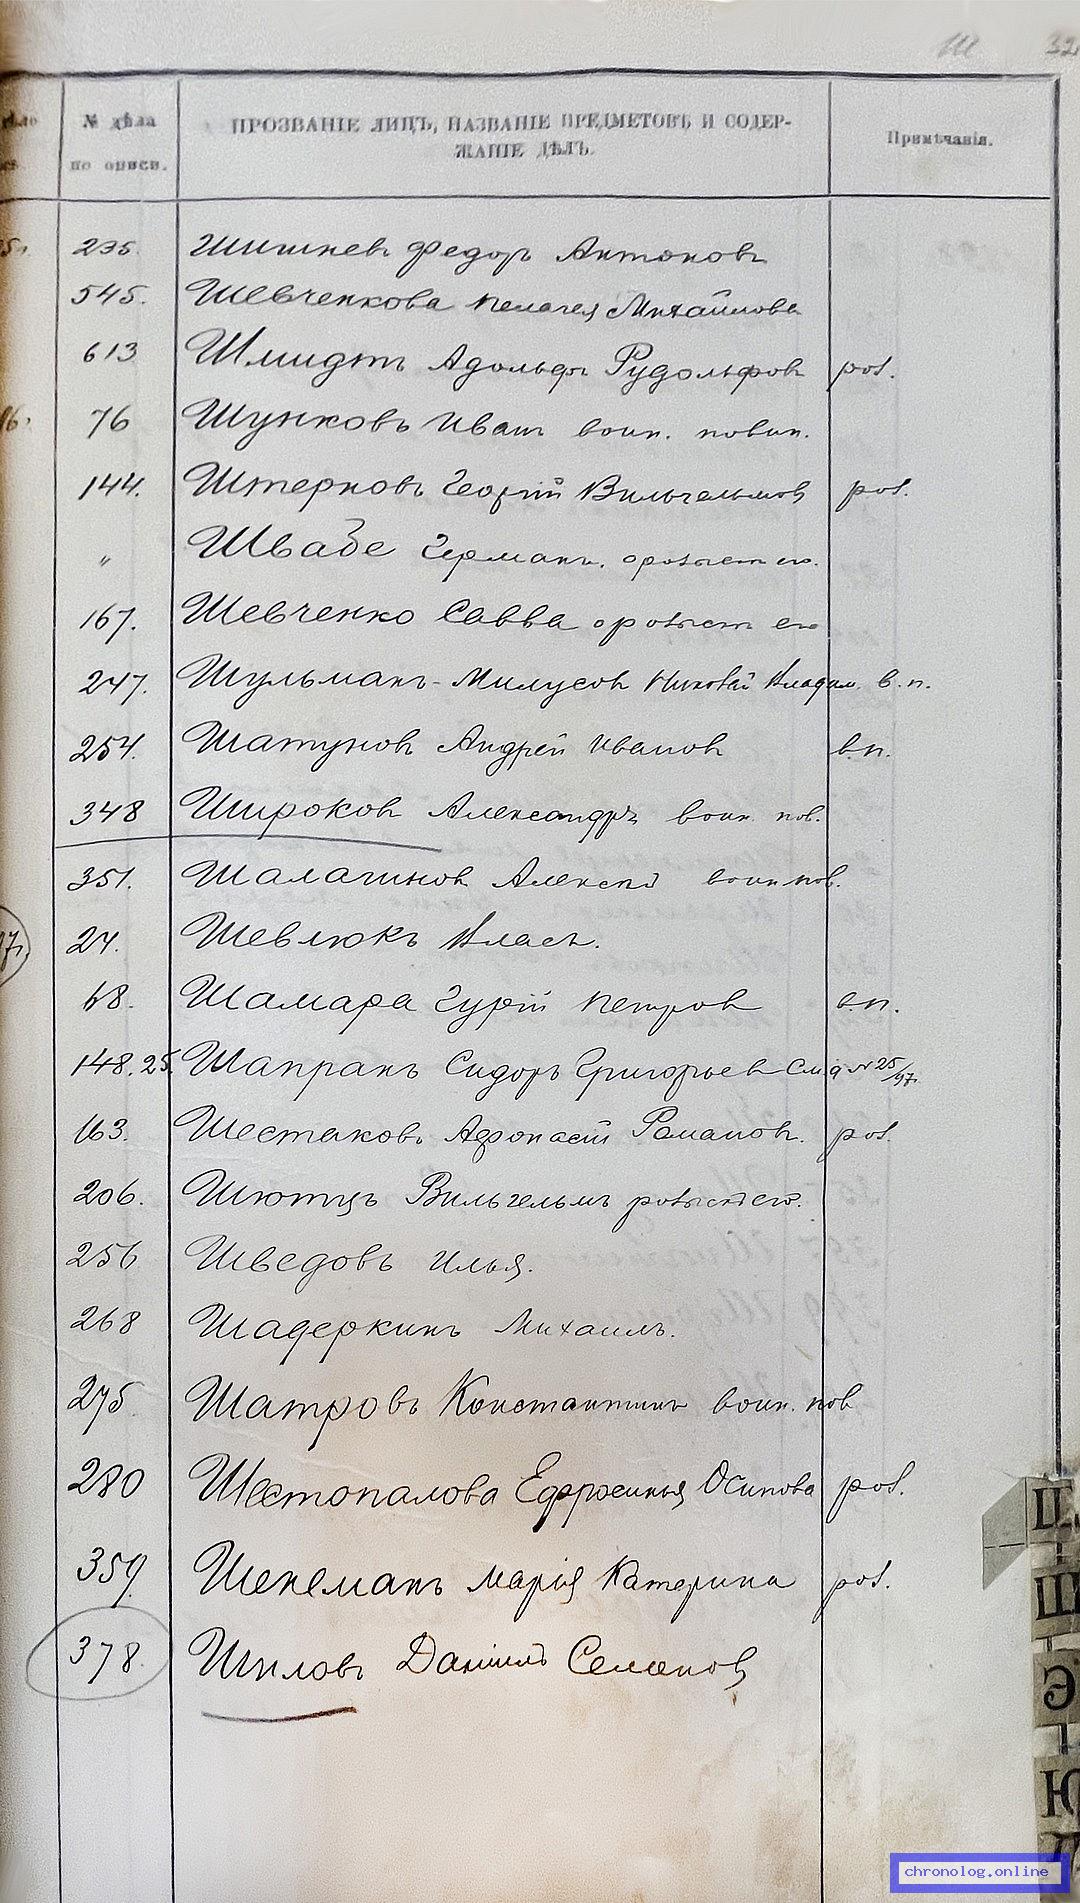 Ш 32
№ дѣла по описи.
ПРОЗВАНІЕ ЛИЦЪ, НАЗВАНІЕ ПРЕДМЕТОВЪ И СОДЕР-
ЖАНІЕ ДѢЛЪ.
Примѣчанія.
235. Шишневъ Федоръ Антоновъ
545. Шевченкова Пелагея Михайлова
613 Шмидтъ Адольфъ Рудольфовъ роз.
76 Шунковъ Иванъ воин. повин.
144. Штерновъ Георгій Вильгельмов роз.
" Швабе Германъ. о розыск его.
167. Шевченко Савва о розыск его
247. Шульманъ-Милусовъ Николай Владим. в. п.
254. Шатуновъ Андрей Ивановъ в.п.
348 Широковъ Александръ воин. пов.
351. Шалагиновъ Алексѣй воин пов.
24. Шевлюкъ Власъ.
68. Шамара Гурій Петровъ в.п.
148. 25. Шапранъ Сидоръ Григорьевъ См д № 25/97.
163. Шестаковъ Афонасій Романовъ. роз.
206. Шютцъ Вильгельмъ розыск его.
256 Шведовъ Илья.
268 Шадеркинъ Михаилъ.
275 Шатровъ Константинъ воин. пов
280 Шестопалова Ефросинья Осипова роз.
359. Шенеманъ Марія Катерина роз.
378. Шиловъ Даніилъ Семенов
Щ
Э
Ю
chronolog.online